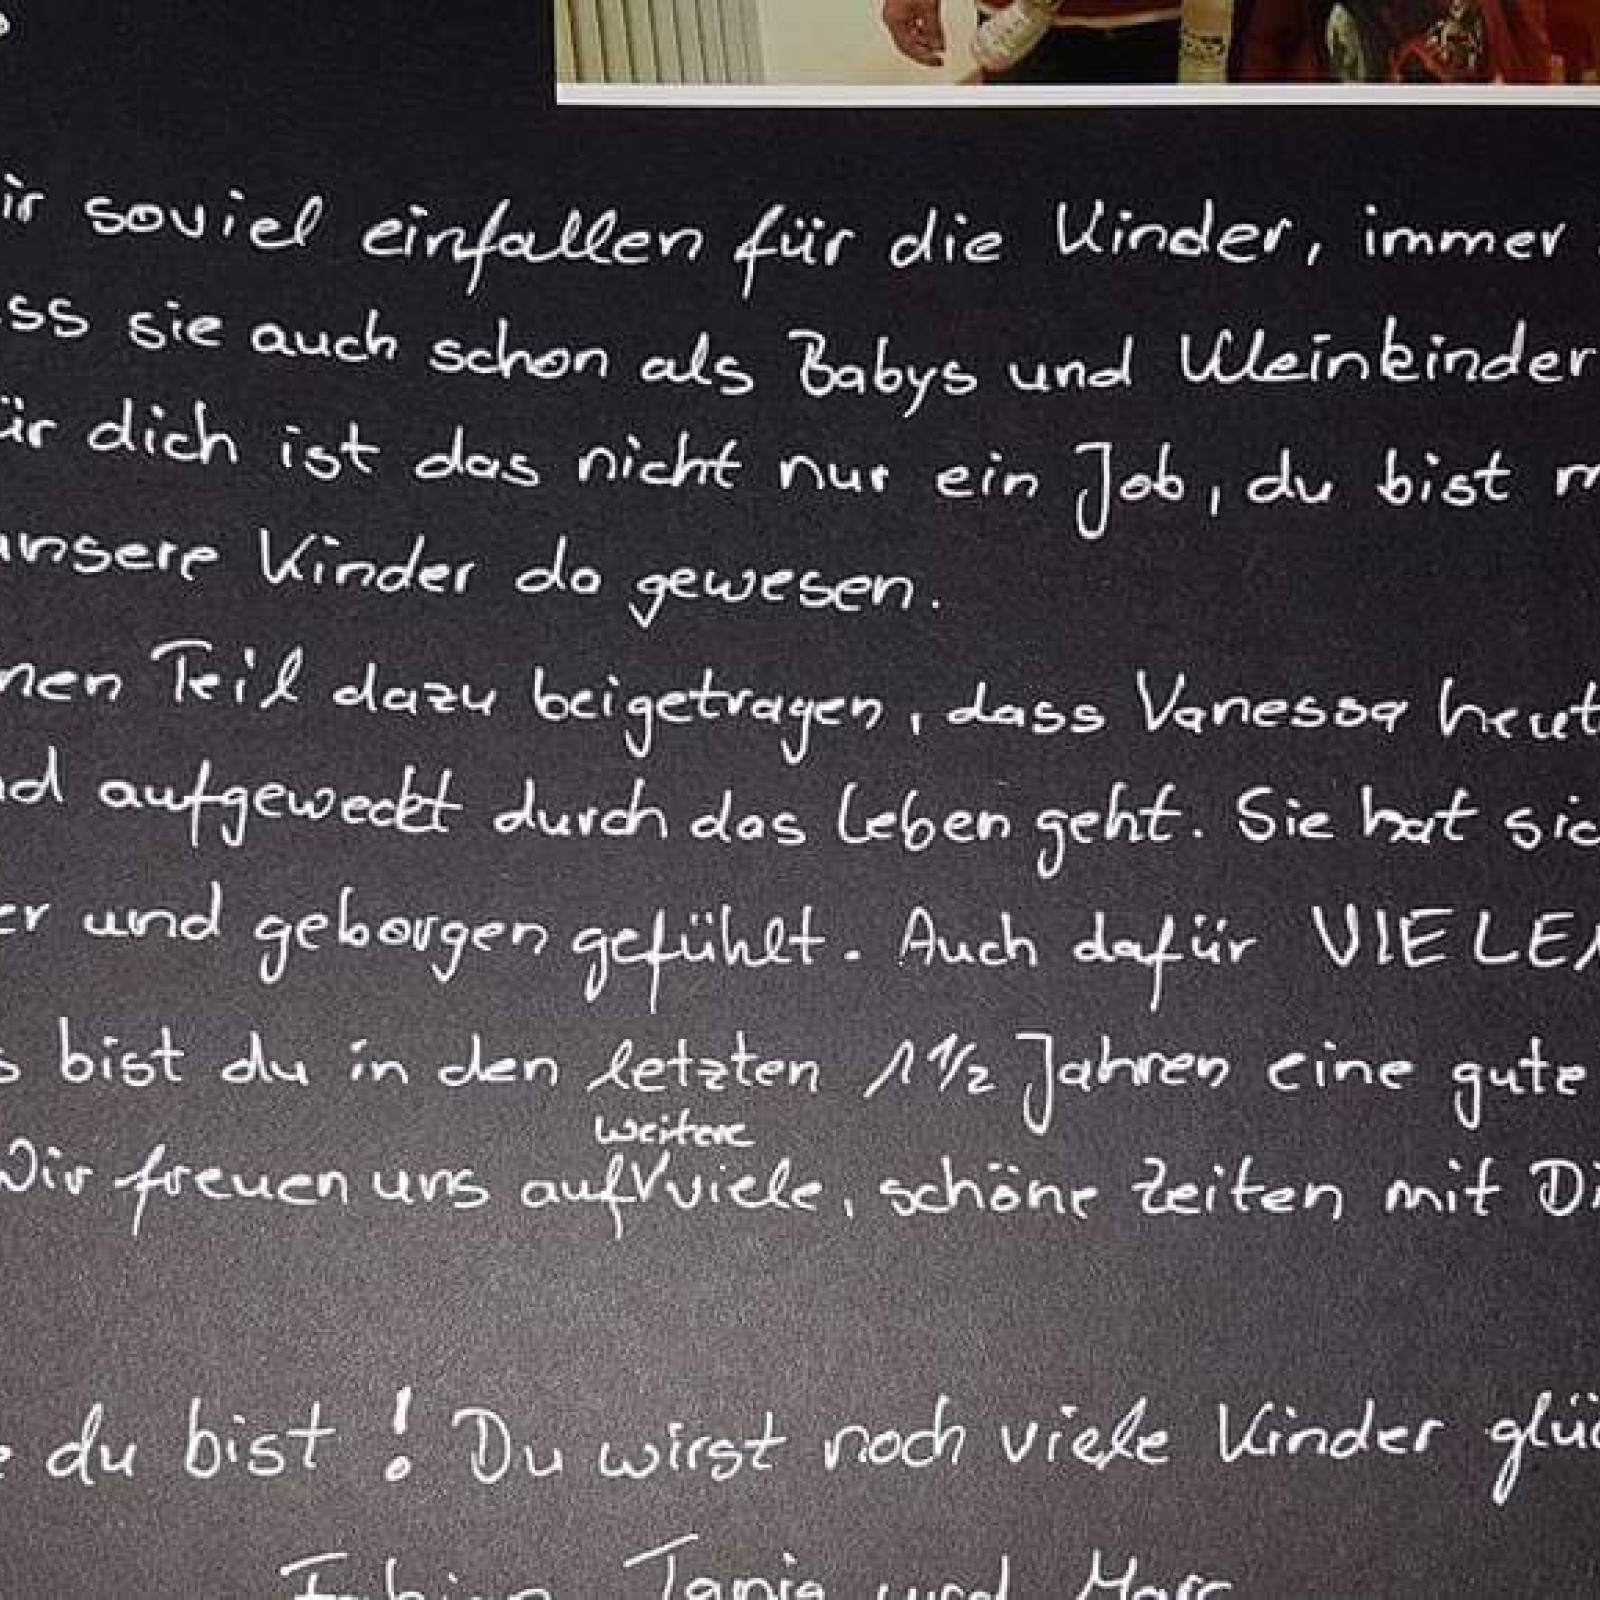 ir soviel einfallen für die Kinder, immer
ss sie auch schon als Babys und Kleinkinder
ür dich ist das nicht nur ein Job, du bist m
unsere Kinder da gewesen.
nen Teil dazu beigetragen, dass Vanessa heut
nd aufgeweckt durch das Leben geht. Sie hat sic
er und geborgen gefühlt. Auch dafür VIELEN
s bist du in den letzten 1 1/2 Jahren eine gute
weitere
Wir freuen uns auf viele, schöne Zeiten mit Di
e du bist! Du wirst noch viele Kinder glüc
Fabian, Tanja und Marc